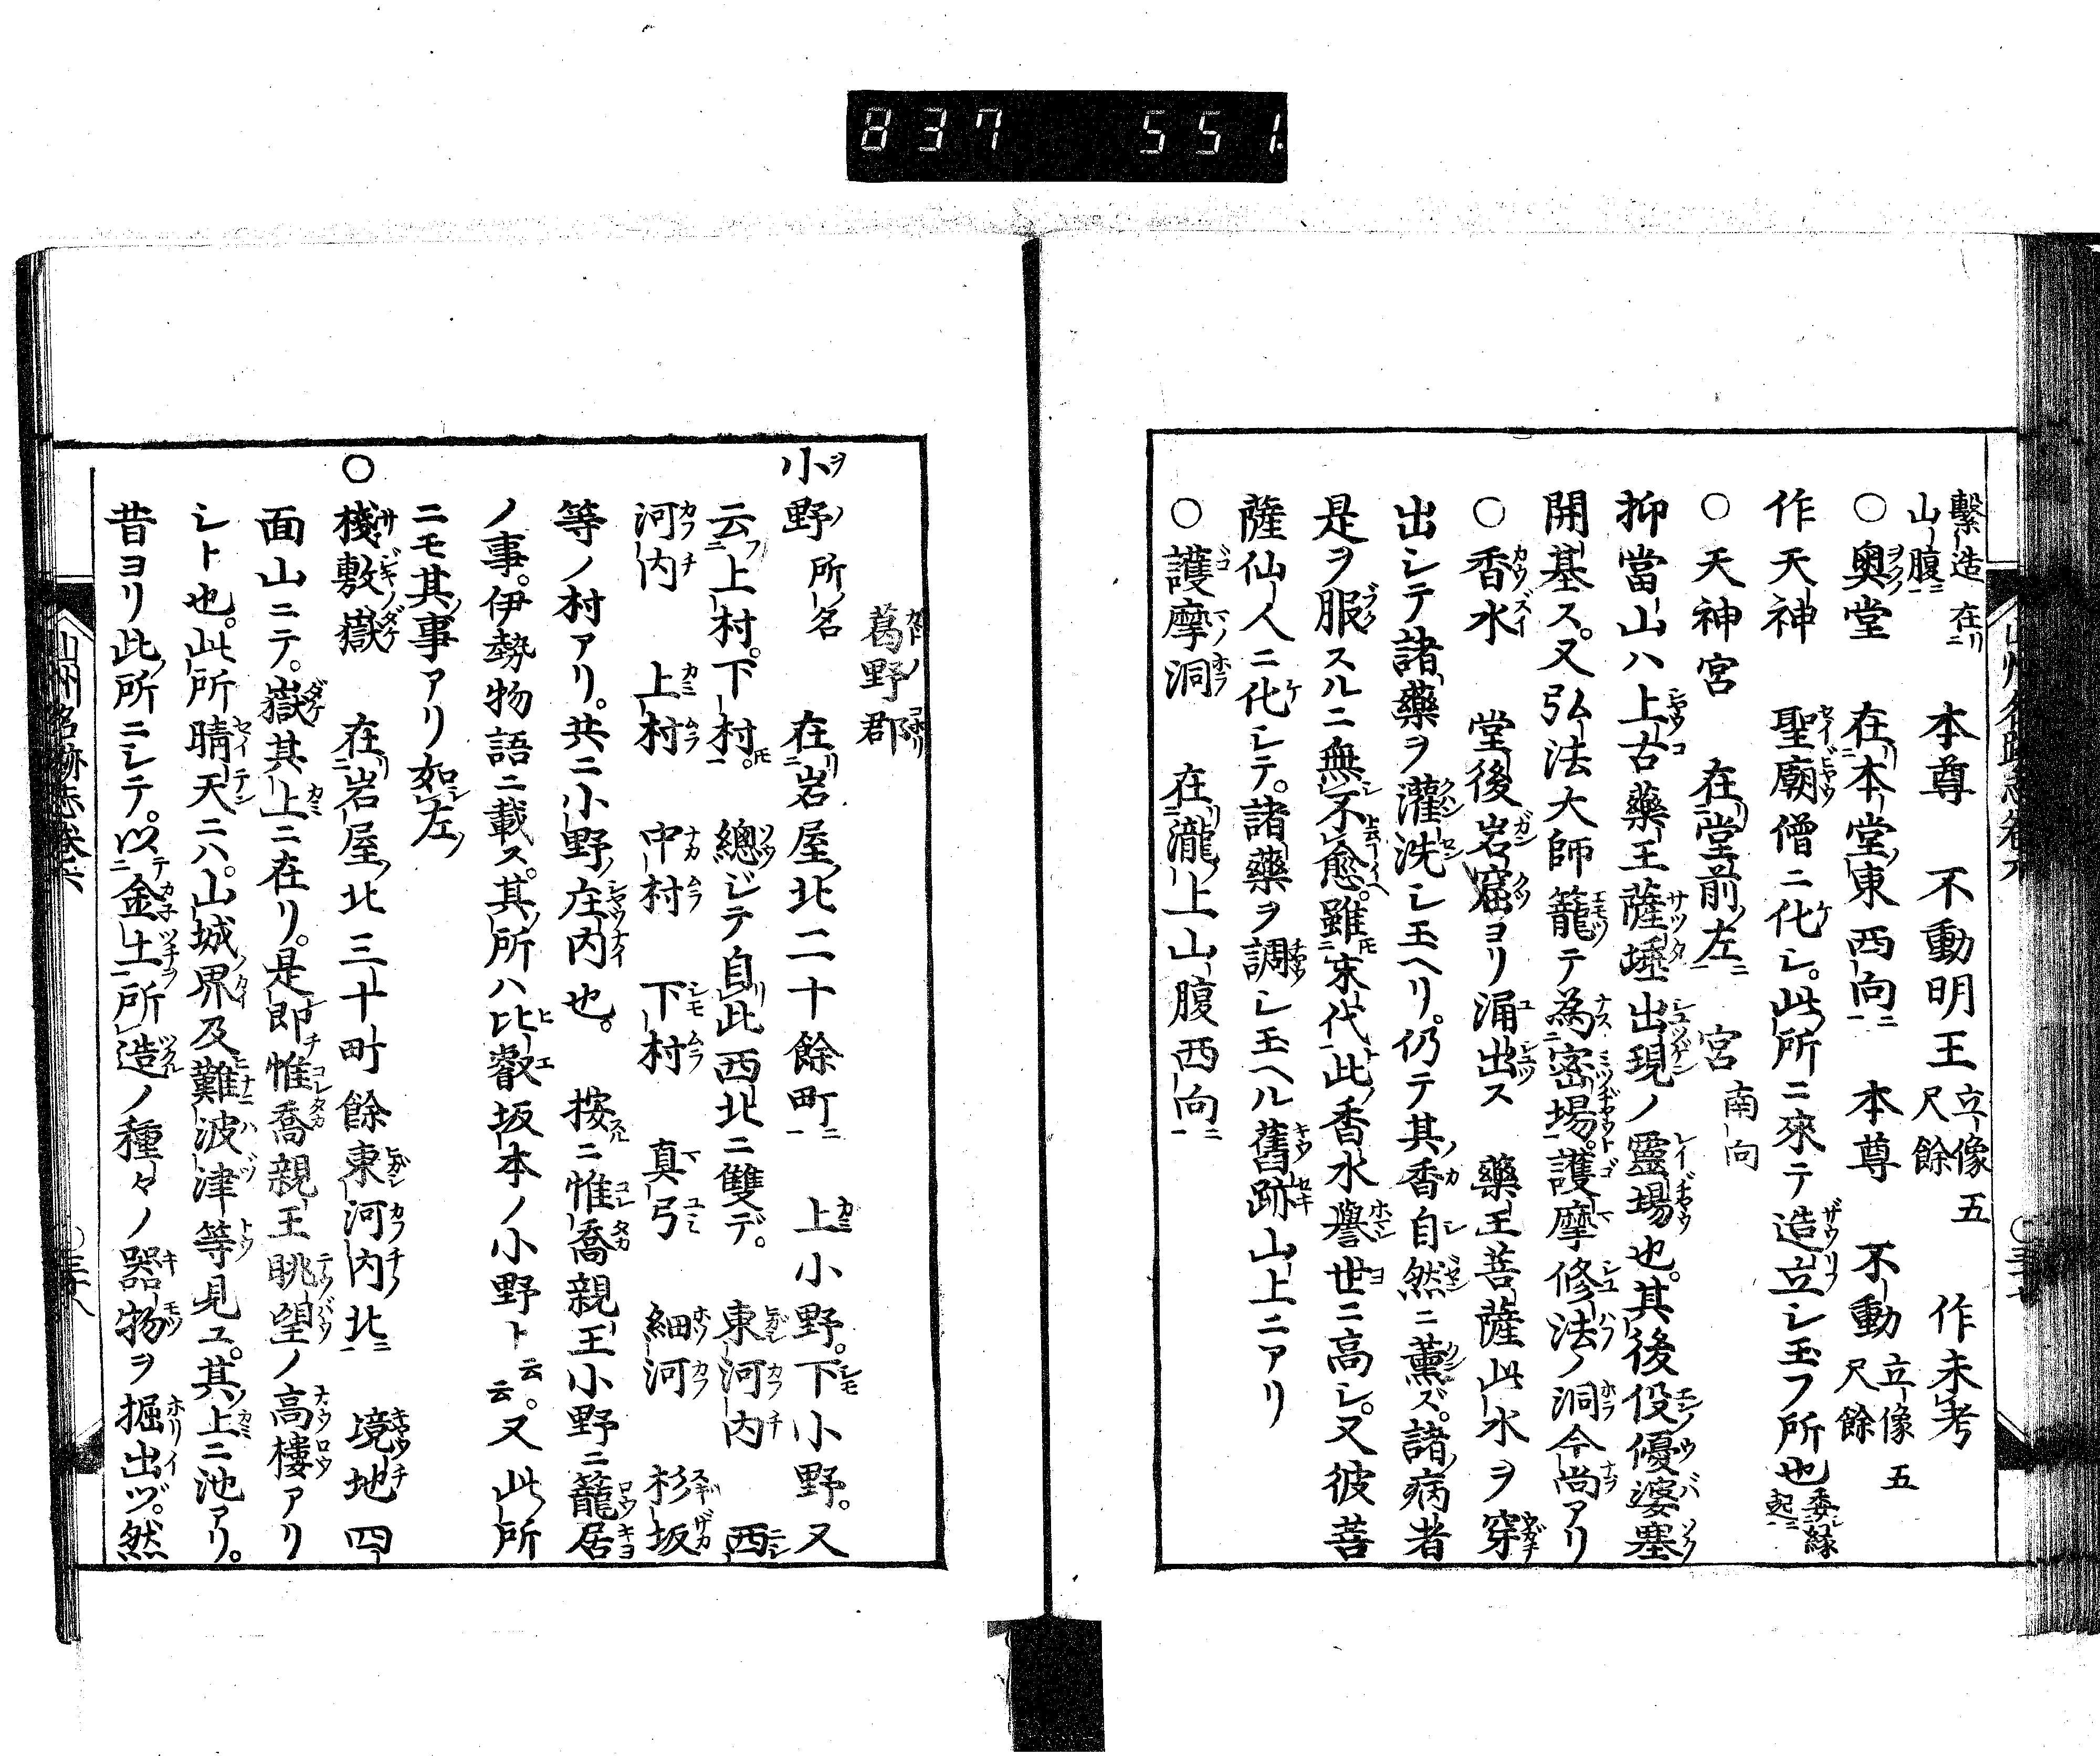 837 551
繫造 在山腹 本尊 不動明王 立像五尺餘 作未考
○奥堂 在本堂東西向 本尊 不動 立像五尺餘
作天神 聖廟僧ニ化シ。此所ニ來テ造立シ玉フ所也 委縁起
○天神宮 在堂前左 宮 南向
抑當山ハ上古藥王薩埵出現ノ靈場也。其後役優婆塞
開基ス。又弘法大師籠テ為密場。護摩修法ノ洞今尚アリ
○香水 堂後岩窟ヨリ涌出ス 藥王菩薩此水ヲ穿
出シテ諸藥ヲ灌洗シ玉ヘリ。仍テ其香自然ニ薫ズ。諸病者
是ヲ服スルニ無不愈。雖末代此香水譽世ニ高シ。又彼菩
薩仙人ニ化シテ。諸藥ヲ調シ玉ヘル舊跡山上ニアリ
○護摩洞 在瀧上山腹西向
葛野郡
小野 所名 在岩屋北二十餘町 上小野。下小野。又
云上村。下村。 總ジテ自此西北ニ雙デ。 東河内 西
河内 上村 中村 下村 真弓 細河 杉坂
等ノ村アリ。共ニ小野庄内也。 按ニ惟喬親王小野ニ籠居
ノ事。伊勢物語ニ載ス。其所ハ比叡坂本ノ小野ト云云。又此所
ニモ其事アリ如左
○棧敷嶽 在岩屋北三十町餘東河内北 境地四
面山ニテ。嶽其上ニ在リ。是即惟喬親王眺望ノ高樓アリ
シト也。此所晴天ニハ。山城界及難波津等見ユ。其上ニ池アリ。
昔ヨリ此所ニシテ。以金土所造ノ種々ノ器物ヲ掘出ヅ。然
山州名跡志卷六